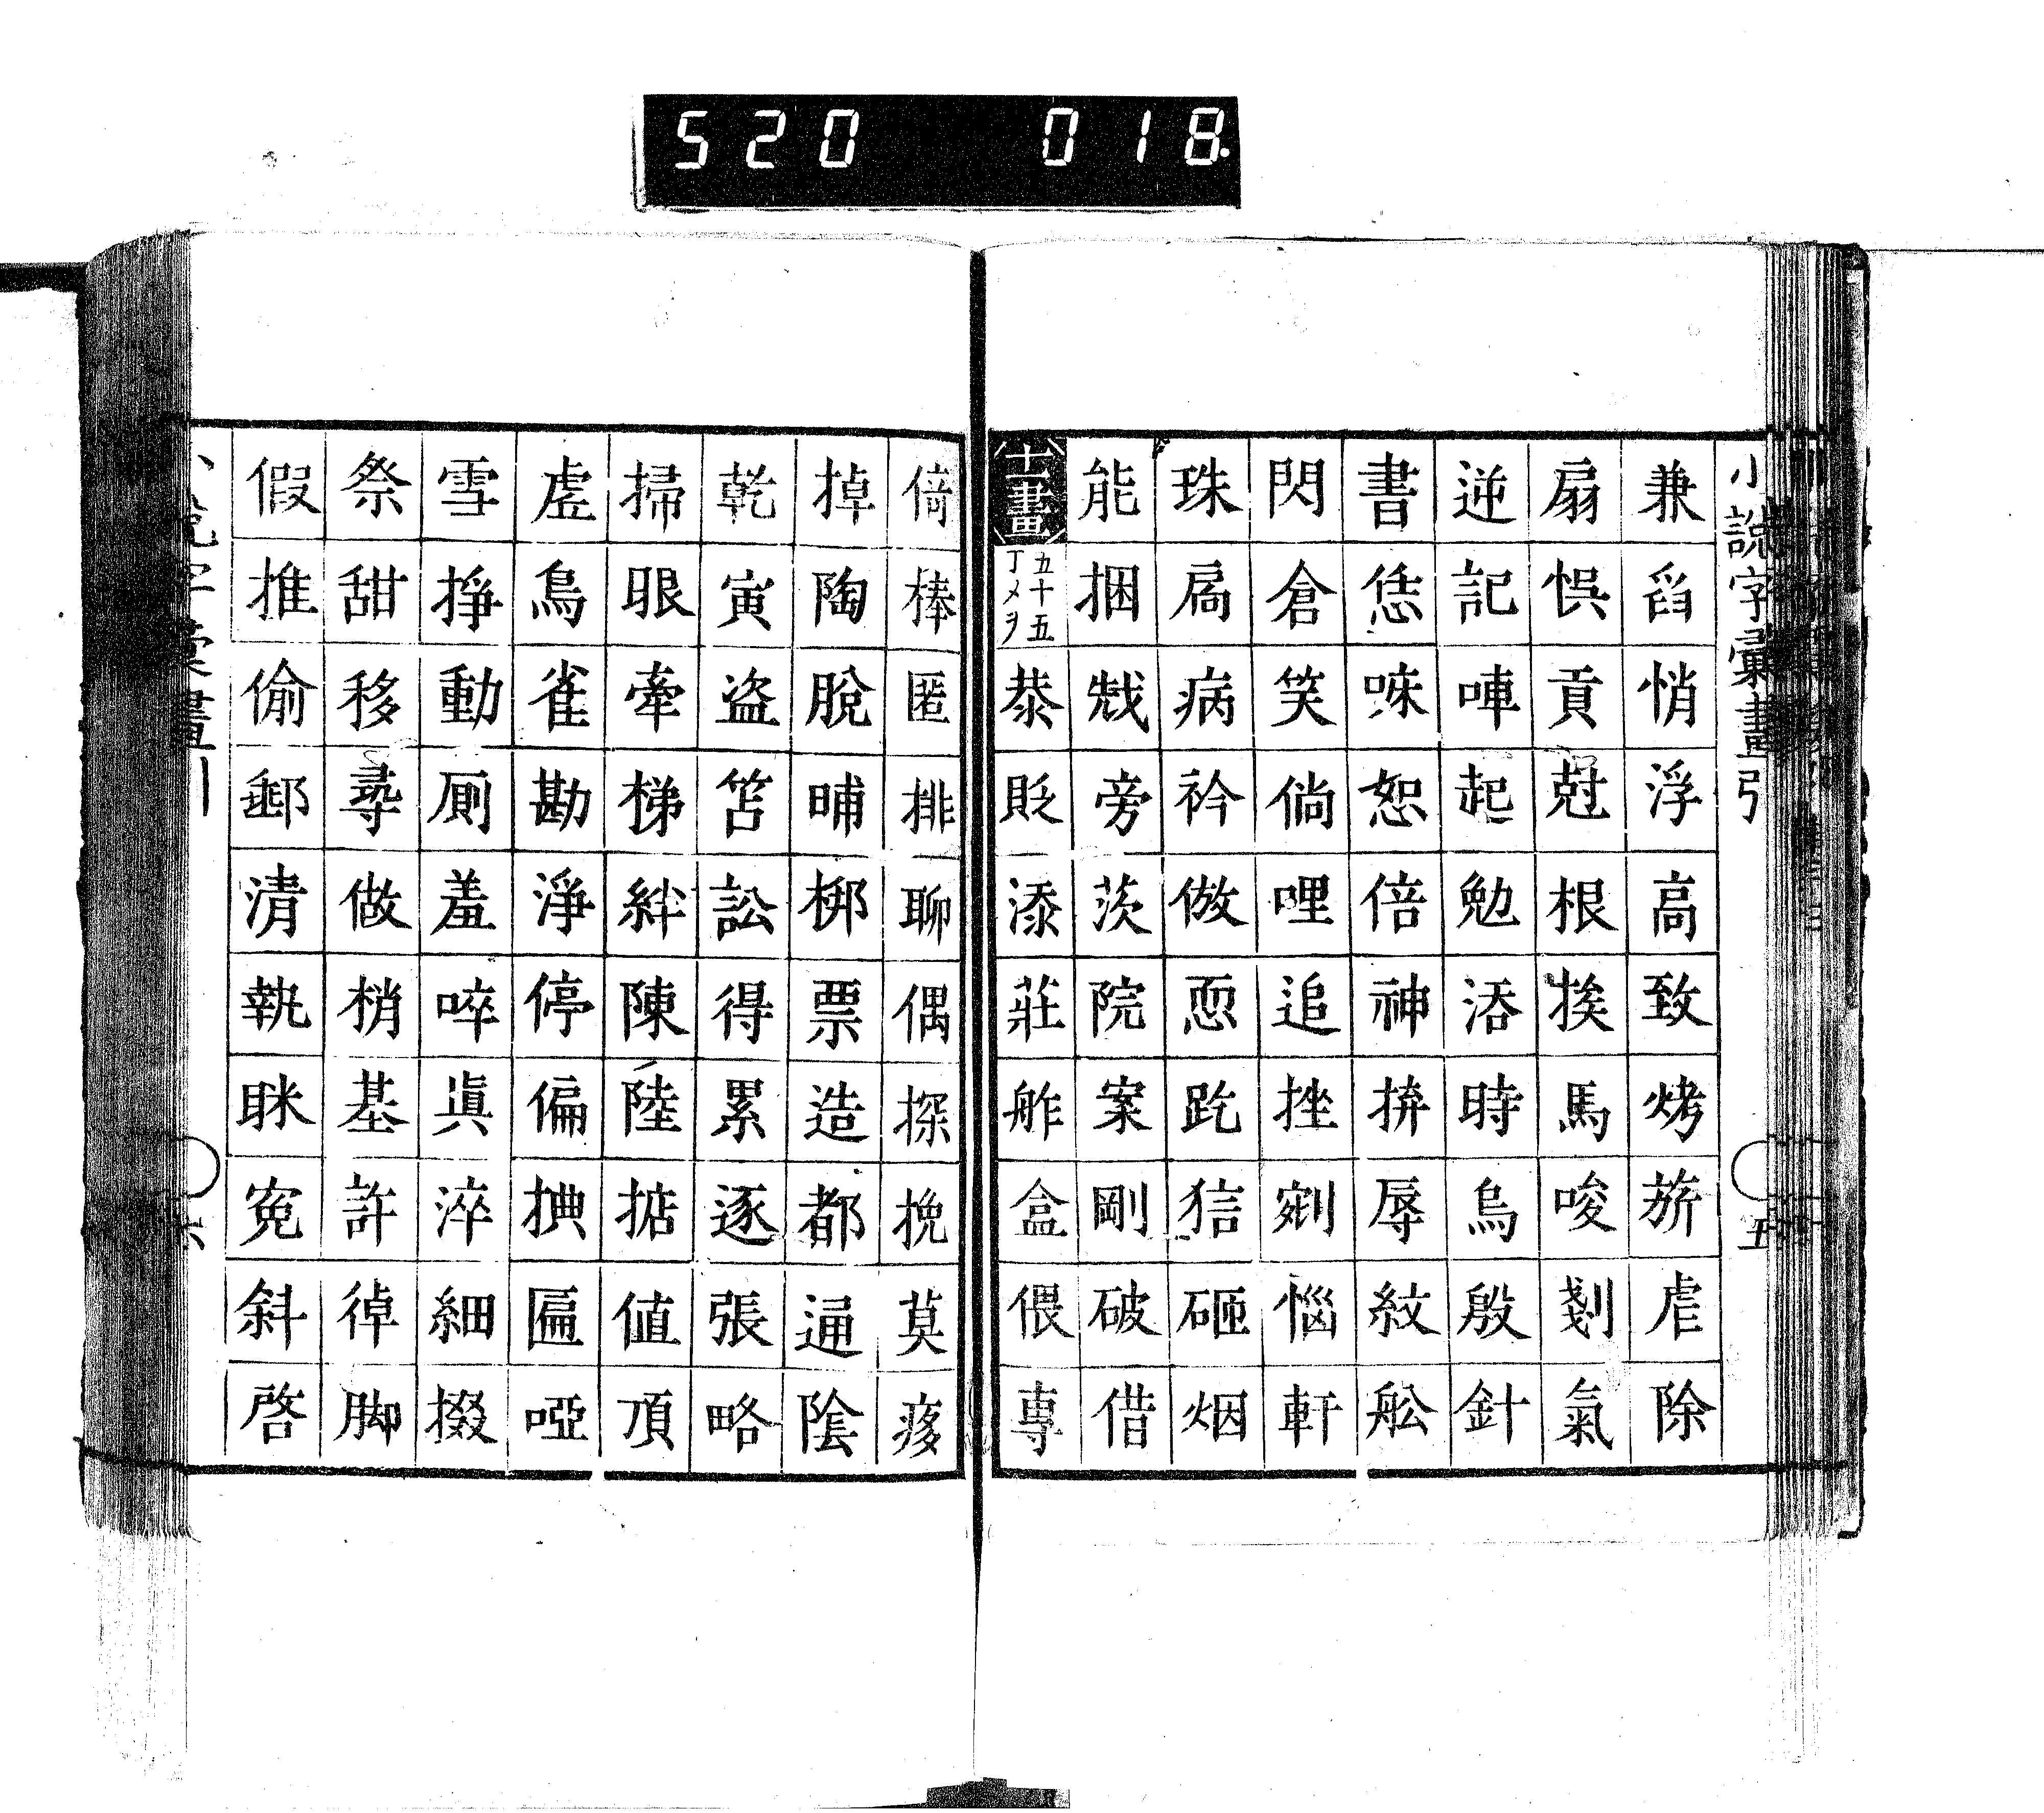 520 018
小說字彙畫引 五
兼舀悄浮高致烤旂虐除
扇悞貢尅根挨馬唆剗氣
逆記唓起勉浯時烏殷針
書恁唻恕倍神拚辱紋舩
閃倉笑倘哩追挫剜惱軒
珠扄病衿倣恧趷狺砸烟
能捆戝旁茨院案剛破借
十一畫
五十五
丁メヲ
恭貶添莊舴盒偎專
倚棒匿排聊偶探挽莫痎
掉陶脫晡梆票造都通陰
乾寅盗笘訟得累逐張略
掃眼牽梯絆陳陸掂值頂
虛鳥雀勘淨停偏捵匾啞
雪掙動厠羞啐眞淬細掇
祭甜移尋做梢基許徛脚
假推偷郵清執眯寃斜啓